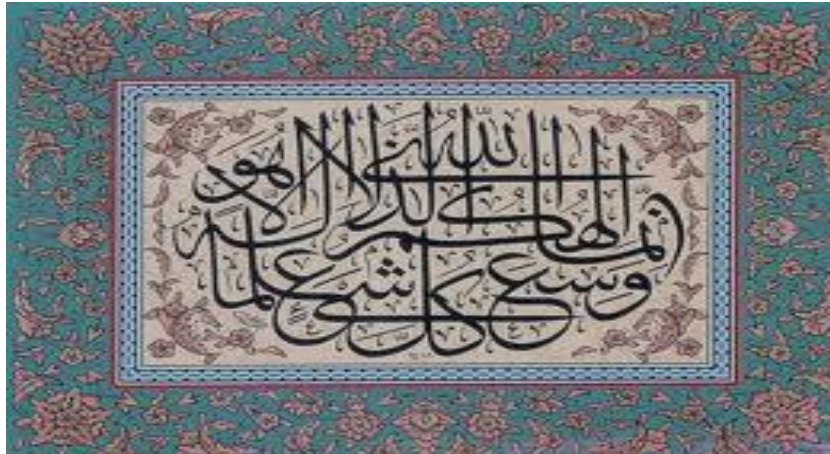 إنما إلهكم الله الذي لا إله إلا هو
وسع كل شيء علما